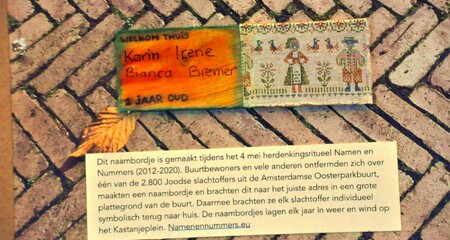 WELKOM THUIS
Karin Irene
Bianca Biemer
2 JAAR OUD
Dit naambordje is gemaakt tijdens het 4 mei herdenkingsritueel Namen en
Nummers (2012-2020). Buurtbewoners en vele anderen ontfermden zich over
één van de 2.800 Joodse slachtoffers uit de Amsterdamse Oosterparkbuurt,
maakten een naambordje en brachten dit naar het juiste adres in een grote
plattegrond van de buurt. Daarmee brachten ze elk slachtoffer individueel
symbolisch terug naar huis. De naambordjes lagen elk jaar in weer en wind op
het Kastanjeplein. Namenennummers.eu